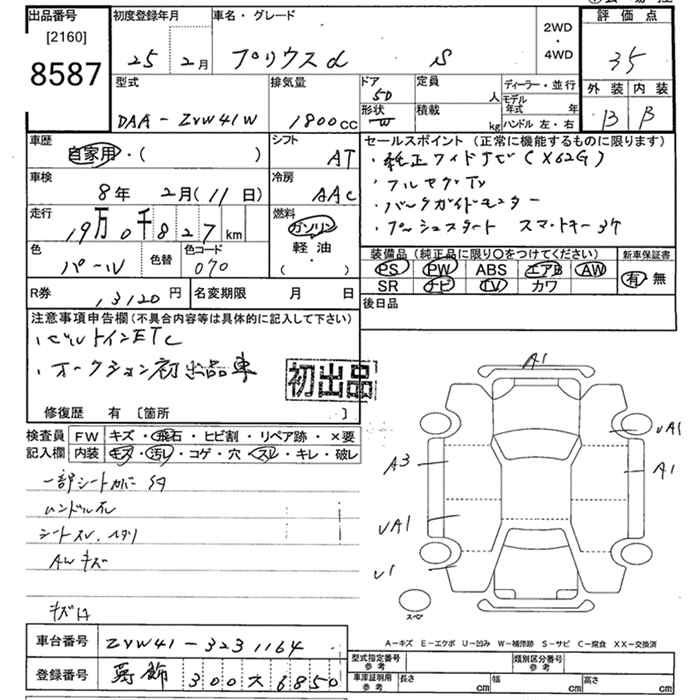 出品番号
[2160]
8587
初度登録年月
25 2月
車名・グレード
プリウスα S
2WD
・
4WD
評価点
35
外装 内装
B B
型式
DAA-ZVW41W
排気量
1800cc
ドア
5D
形状
W
定員
人
積載
kg
ディーラー・並行
モデル年式 年
ハンドル 左・右
車歴
自家用・( )
シフト
AT
車検
8年 2月(11日)
冷房
AAC
走行
19万0千827km
燃料
ガソリン
・
軽油
( )
色
パール
色替
色コード
070
R券
13120円
名変期限 月 日
セールスポイント(正常に機能するものに限ります)
・純正ワイドナビ(X62G)
・フルセグTV
・バックガイドモニター
・プッシュスタート スマートキー3ケ
装備品(純正品に限り○をつけてください)
PS PW ABS エアB AW
SR ナビ TV カワ
新車保証書
有・無
後日品
注意事項申告欄(不具合内容等は具体的に記入して下さい)
・ビルトインETC
・オークション初出品車
初出品
修復歴 有 [箇所 ]
検査員記入欄
FW キズ・飛石・ヒビ割・リペア跡・×要
内装 キズ・汚レ・コゲ・穴・スレ・キレ・破レ
一部シートカバー
ハンドルスレ
シートスレ、ヘタリ
AWキズ
A1
UA1
A3
A1
UA1
U1
スペア
A-キズ E-エクボ U-凹み W-補修跡 S-サビ C-腐食 XX-交換済
車台番号
ZVW41-3231164
登録番号
300 6850
型式指定番号
参考
類別区分番号
参考
車庫証明用
参考
長さ cm 幅 cm 高さ cm